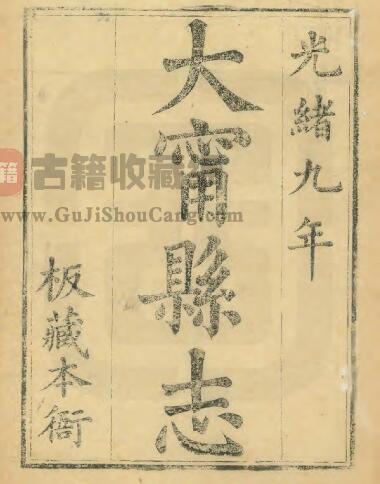 光緒九年
大甯縣志
板藏本衙
籍 古籍收藏
www.GuJiShouCang.com